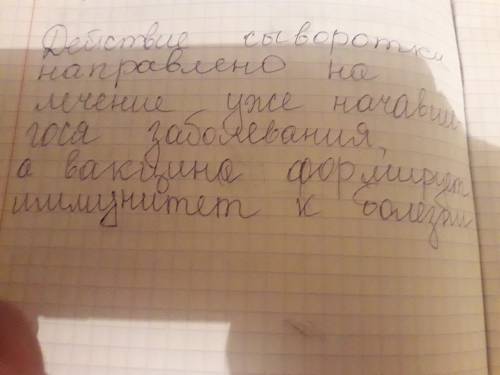 Действие сыворотки
направлено на
лечение уже начавше
гося заболевания,
а вакцина формирует
иммунитет к болезни